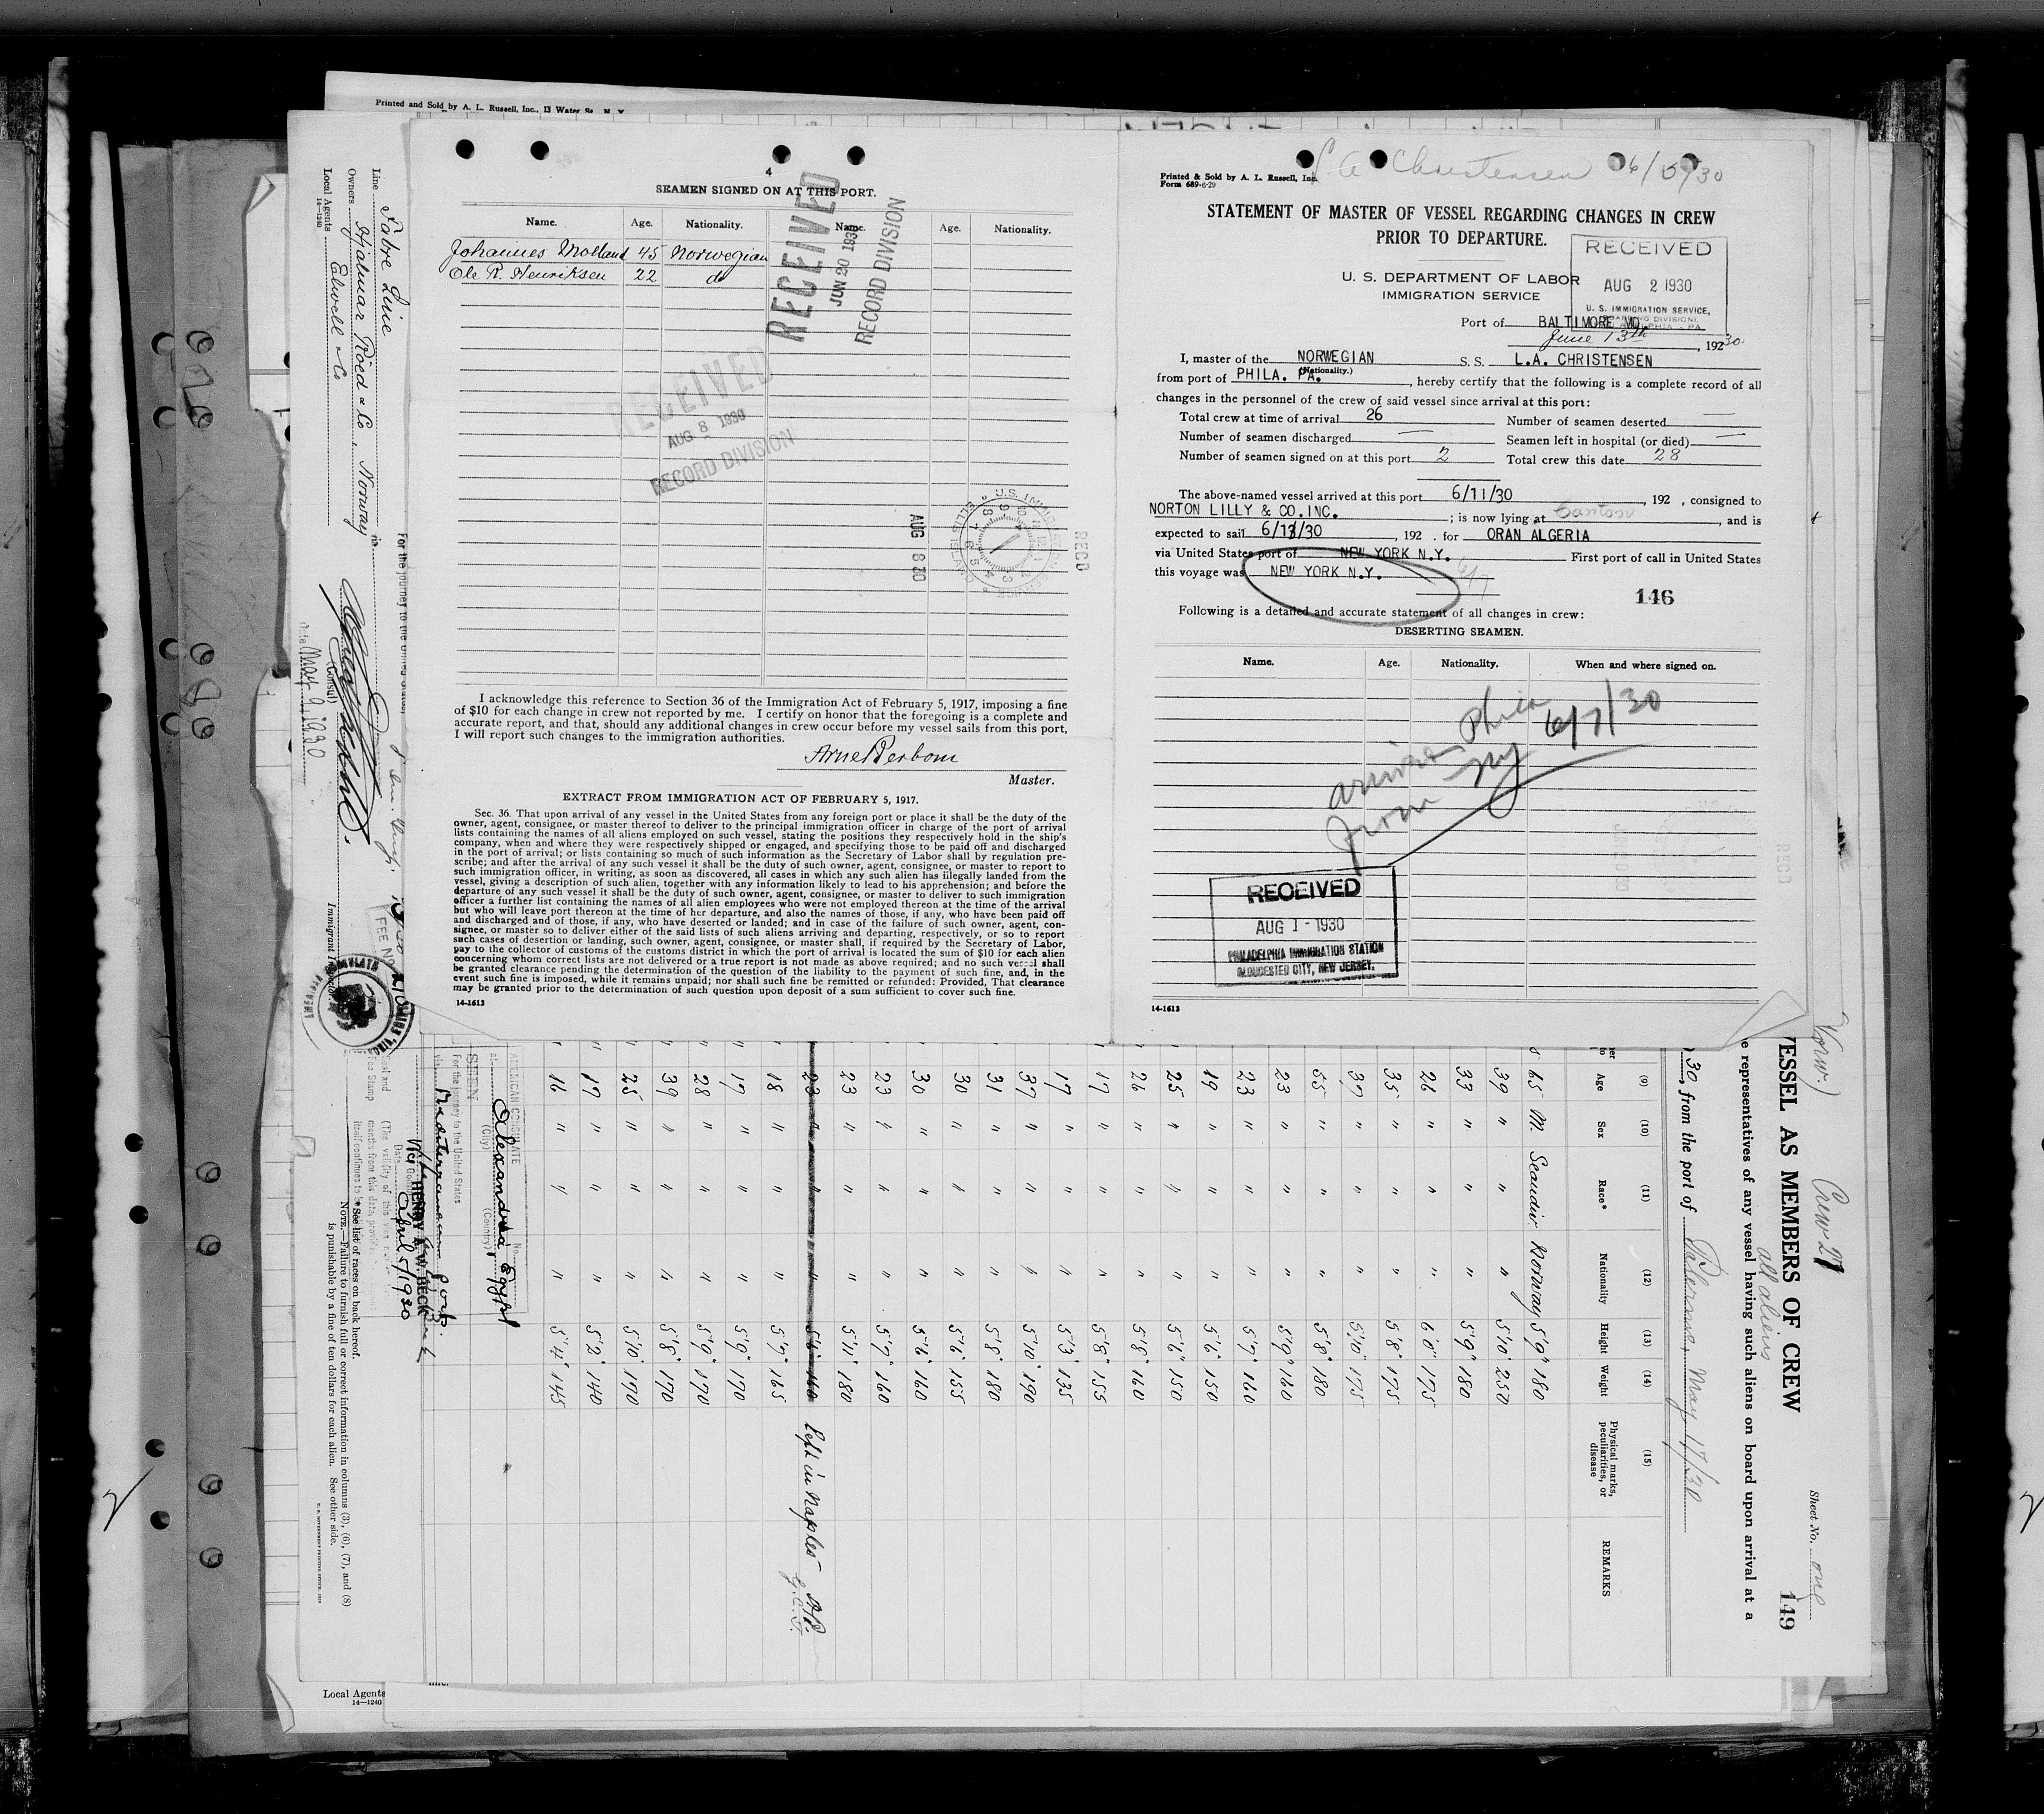 Printed and Sold by A. L. Russell, Inc., 13 Water St., N. Y.
4
SEAMEN SIGNED ON AT THIS PORT.
Name. Age. Nationality. Name. Age. Nationality.
Johannes Molland 45 Norwegian
Ole R. Henriksen 22 do
RECEIVED
JUN 20 1930
RECORD DIVISION
RECEIVED
AUG 8 1930
RECORD DIVISION
AUG 8 30
RECD
I acknowledge this reference to Section 36 of the Immigration Act of February 5, 1917, imposing a fine
of $10 for each change in crew not reported by me. I certify on honor that the foregoing is a complete and
accurate report, and that, should any additional changes in crew occur before my vessel sails from this port,
I will report such changes to the immigration authorities.
Master.
EXTRACT FROM IMMIGRATION ACT OF FEBRUARY 5, 1917.
Sec. 36. That upon arrival of any vessel in the United States from any foreign port or place it shall be the duty of the
owner, agent, consignee, or master thereof to deliver to the principal immigration officer in charge of the port of arrival
lists containing the names of all aliens employed on such vessel, stating the positions they respectively hold in the ship's
company, when and where they were respectively shipped or engaged, and specifying those to be paid off and discharged
in the port of arrival; or lists containing so much of such information as the Secretary of Labor shall by regulation pre-
scribe; and after the arrival of any such vessel it shall be the duty of such owner, agent, consignee, or master to report to
such immigration officer, in writing, as soon as discovered, all cases in which any such alien has illegally landed from the
vessel, giving a description of such alien, together with any information likely to lead to his apprehension; and before the
departure of any such vessel it shall be the duty of such owner, agent, consignee, or master to deliver to such immigration
officer a further list containing the names of all alien employees who were not employed thereon at the time of the arrival
but who will leave port thereon at the time of her departure, and also the names of those, if any, who have been paid off
and discharged and of those, if any, who have deserted or landed; and in case of the failure of such owner, agent, con-
signee, or master so to deliver either of the said lists of such aliens arriving and departing, respectively, or so to report
such cases of desertion or landing, such owner, agent, consignee, or master shall, if required by the Secretary of Labor,
pay to the collector of customs of the customs district in which the port of arrival is located the sum of $10 for each alien
concerning whom correct lists are not delivered or a true report is not made as above required; and no such vessel shall
be granted clearance pending the determination of the question of the liability to the payment of such fine, and, in the
event such fine is imposed, while it remains unpaid; nor shall such fine be remitted or refunded: Provided, That clearance
may be granted prior to the determination of such question upon deposit of a sum sufficient to cover such fine.
14-1613
L A Christensen 6/13/30
Printed & Sold by A. L. Russell, Inc.
Form 689-6-29
STATEMENT OF MASTER OF VESSEL REGARDING CHANGES IN CREW
PRIOR TO DEPARTURE.
U. S. DEPARTMENT OF LABOR
IMMIGRATION SERVICE
RECEIVED
AUG 2 1930
U. S. IMMIGRATION SERVICE,
Port of BALTIMORE MD.
June 13th, 1930
I, master of the NORWEGIAN S. S. L.A. CHRISTENSEN
(Nationality.)
from port of PHILA. PA., hereby certify that the following is a complete record of all
changes in the personnel of the crew of said vessel since arrival at this port:
Total crew at time of arrival 26 Number of seamen deserted —
Number of seamen discharged — Seamen left in hospital (or died) —
Number of seamen signed on at this port 2 Total crew this date 28
The above-named vessel arrived at this port 6/11/30, 192 , consigned to
NORTON LILLY & CO.INC.; is now lying at Canton, and is
expected to sail 6/13/30, 192 . for ORAN ALGERIA
via United States port of NEW YORK N.Y. First port of call in United States
this voyage was NEW YORK N.Y. 6/7
146
Following is a detailed and accurate statement of all changes in crew:
DESERTING SEAMEN.
Name. Age. Nationality. When and where signed on.
arrived Phila 6/7/30
from NY
RECEIVED
AUG 1 - 1930
PHILADELPHIA IMMIGRATION STATION
GLOUCESTER CITY, NEW JERSEY.
14-1613
Line Fabre Line
Owners Hjalmar Röed & Co., Norway
Local Agents Elwell & Co
14-1240
(Consul)
Date May 9, 1930
Immigrant Inspector
FEE No.
Crew 27
all aliens
Sheet No. one
149
VESSEL AS MEMBERS OF CREW
representatives of any vessel having such aliens on board upon arrival at a
30, from the port of Palermo, May 17/30
(9) (10) (11) (12) (13) (14) (15)
Age Sex Race* Nationality Height Weight Physical marks, peculiarities, or disease REMARKS
65 M. Scandin Norway 5'9" 180
39 " " " 5'10" 250
33 " " " 5'9" 180
26 " " " 6'0" 175
35 " " " 5'8" 175
37 " " " 5'10" 175
55 " " " 5'8" 180
23 " " " 5'9" 160
23 " " " 5'7" 160
19 " " " 5'6" 150
25 " " " 5'6" 150
26 " " " 5'8" 160
17 " " " 5'8" 155
17 " " " 5'3" 135
37 " " " 5'10" 190
31 " " " 5'8" 180
30 " " " 5'6" 155
30 " " " 5'6" 160
23 " " " 5'7" 160
23 " " " 5'11" 180
23 " " " 5'6" 160 Left in Naples
18 " " " 5'7" 165
17 " " " 5'9" 170
28 " " " 5'9" 170
39 " " " 5'8" 170
25 " " " 5'10" 170
17 " " " 5'2" 140
16 " " " 5'4" 145
AMERICAN CONSULATE
at Alexandria, Egypt
(City) (Country)
SEEN
For the journey to the United States
HENRY A. W. BECK
Date April 5/1930
* See list of races on back hereof.
NOTE.—Failure to furnish full or correct information in columns (3), (6), (7), and (8)
is punishable by a fine of ten dollars for each alien. See other side.
Local Agents
14-1240